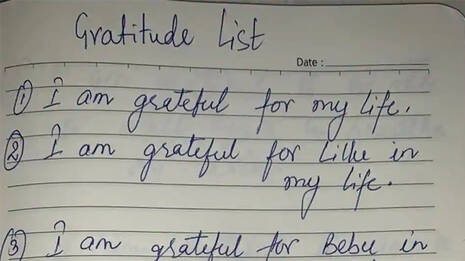 Gratitude List
Date :
① I am grateful for my life.
② I am grateful for Lillu in
my life.
③ I am grateful for Bebu in